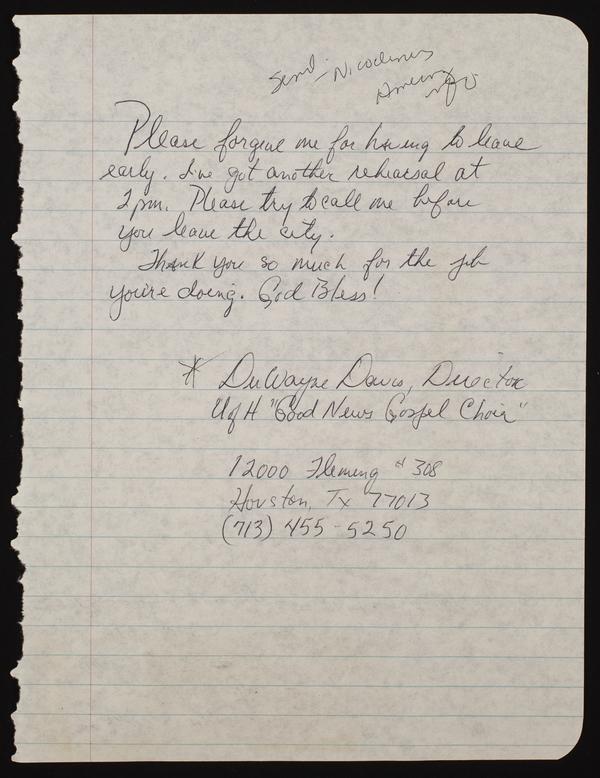 Send - Nicodemus
American
info
Please forgive me for having to leave
early. I've got another rehearsal at
2 pm. Please try to call me before
you leave the city.
Thank you so much for the job
you're doing. God Bless!
* DuWayne Davis, Director
U of H "Good News Gospel Choir"
12000 Fleming # 308
Houston, Tx 77013
(713) 455-5250